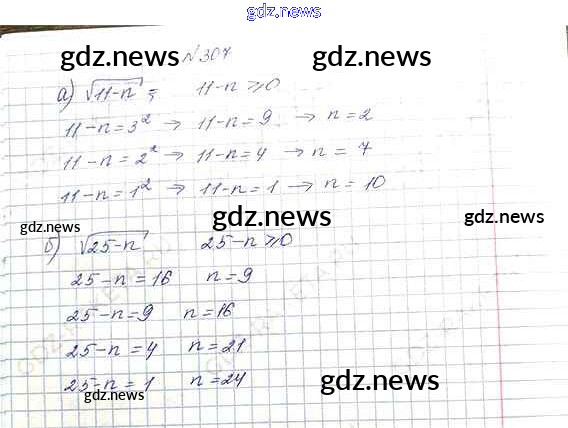 gdz.news
gdz.news № 307 gdz.news
а) √11-n = 11-n ≥ 0
11-n=3² → 11-n=9 → n=2
11-n=2² → 11-n=4 → n=7
11-n=1² → 11-n=1 → n=10
gdz.news gdz.news gdz.news
б) √25-n 25-n≥0
25-n=16 n=9
25-n=9 n=16
25-n=4 n=21
25-n=1 n=24
gdz.news gdz.news